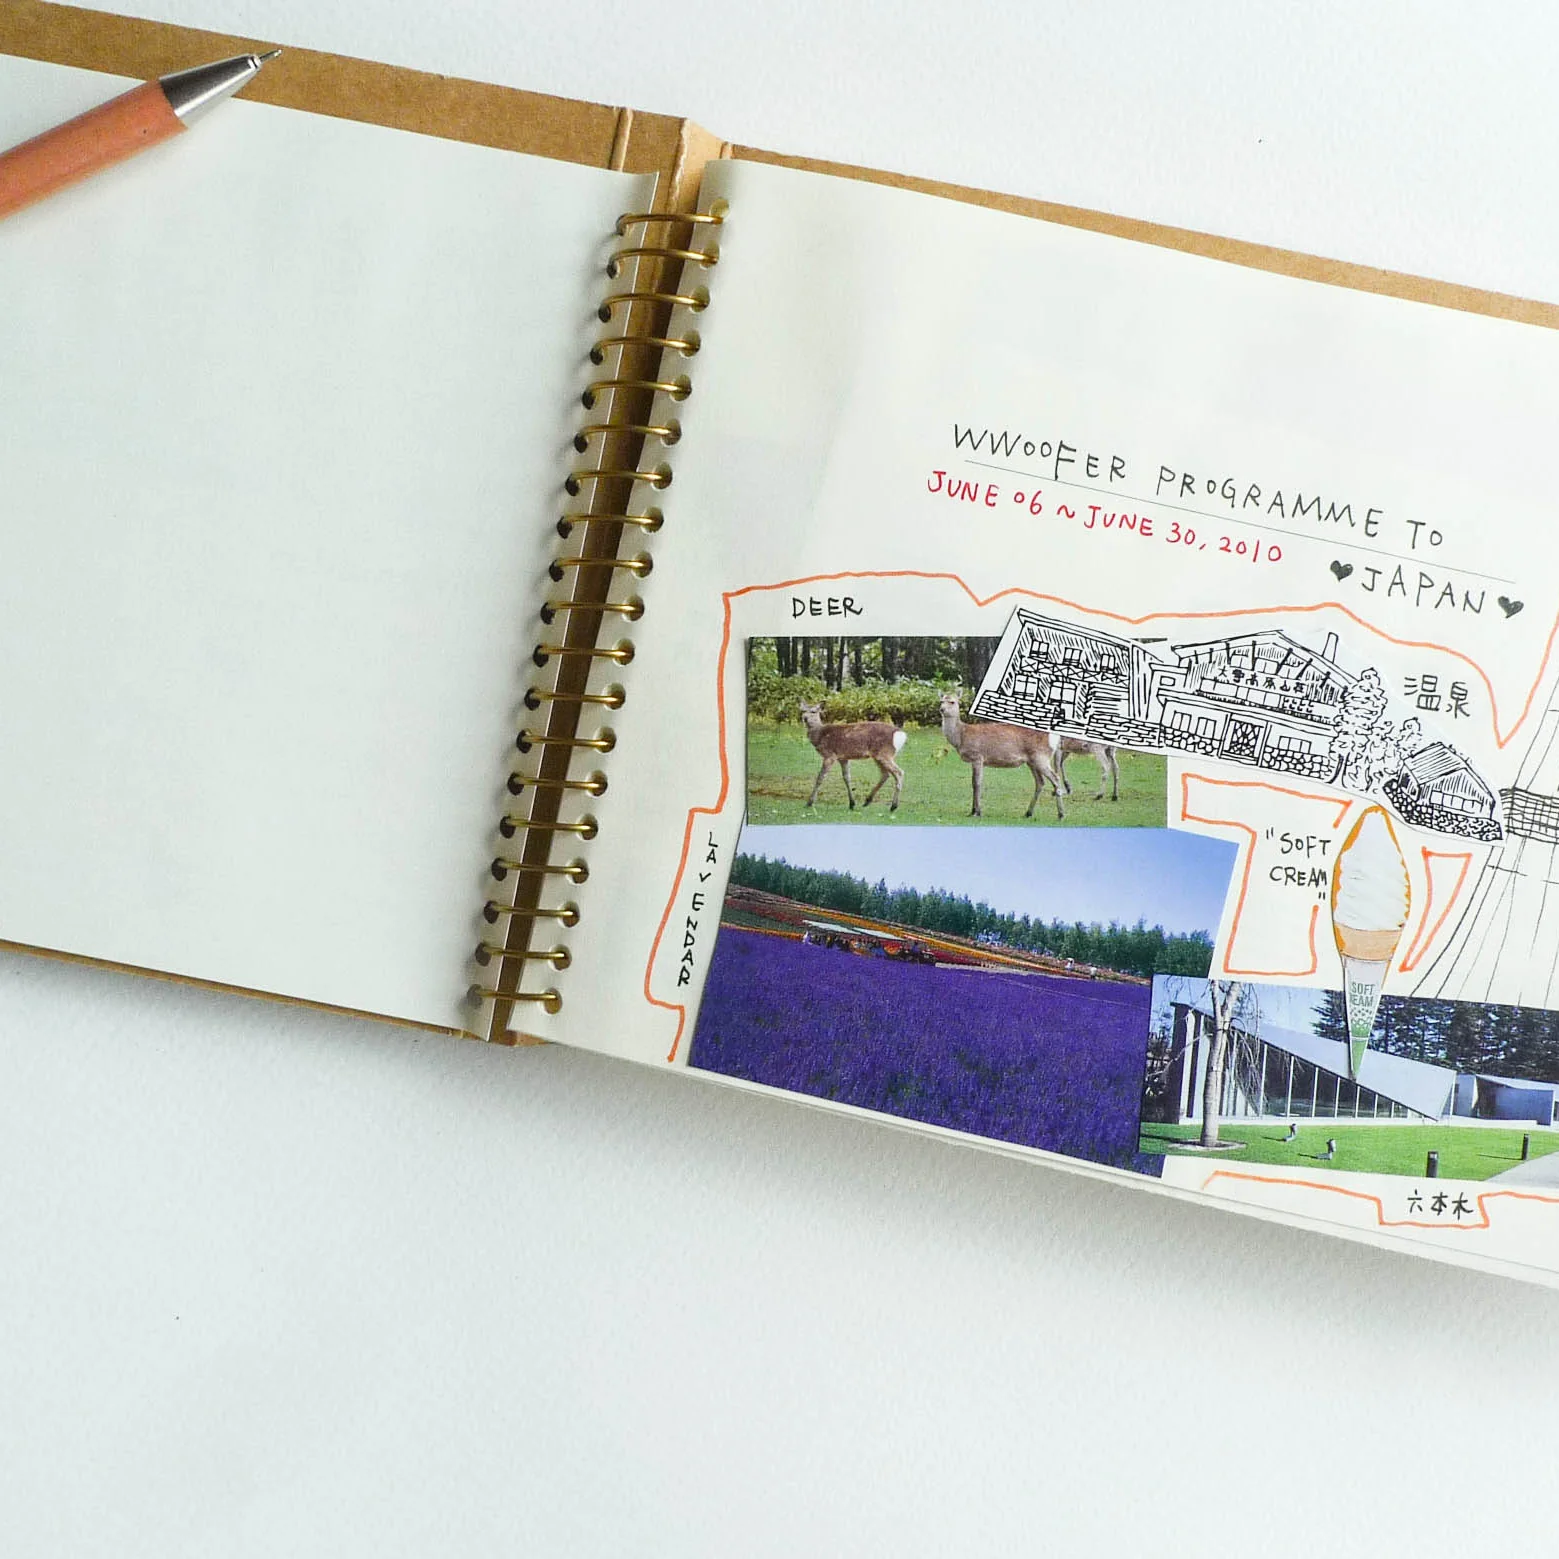 WWOOFER PROGRAMME TO
♥JAPAN♥
JUNE 06 ~ JUNE 30, 2010
DEER
温泉
LAVENDAR
"SOFT
CREAM"
SOFT
六本木